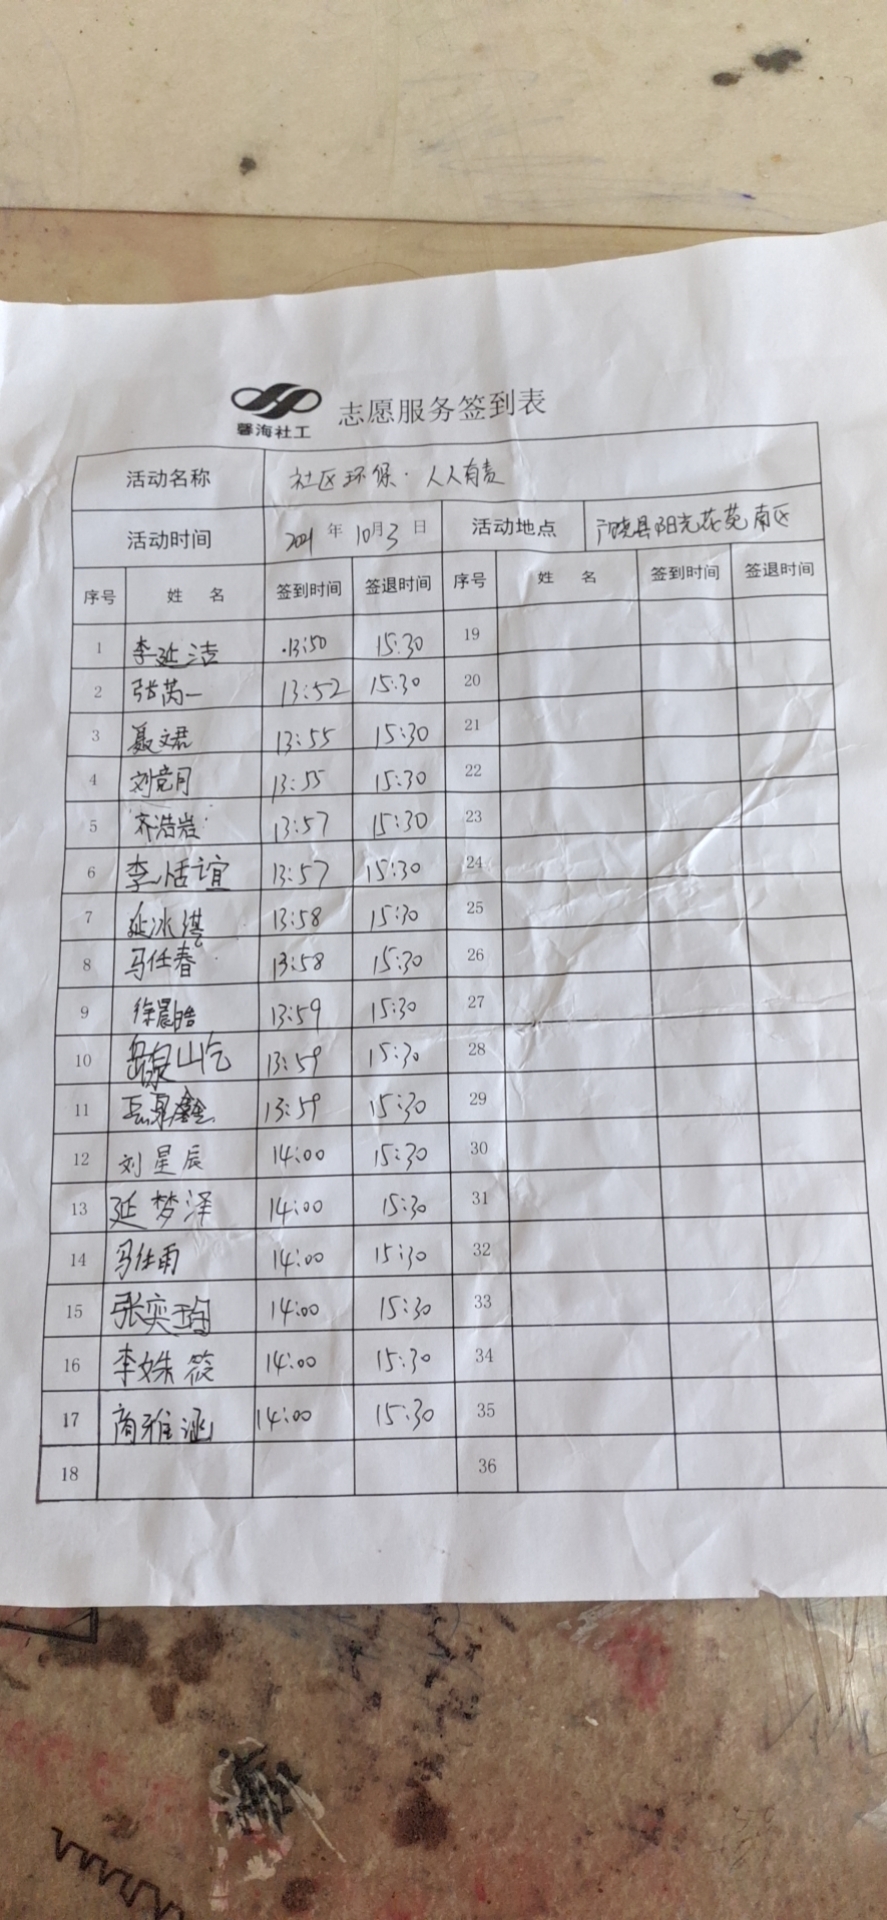 馨海社工
志愿服务签到表
活动名称 社区环保·人人有责
活动时间 2021年10月3日 活动地点 广饶县阳光花苑南区
序号 姓名 签到时间 签退时间 序号 姓名 签到时间 签退时间
1 李延洁 13:50 15:30 19
2 张芮一 13:52 15:30 20
3 聂文君 13:55 15:30 21
4 刘竞月 13:55 15:30 22
5 齐浩岩 13:57 15:30 23
6 李恬谊 13:57 15:30 24
7 延冰淇 13:58 15:30 25
8 马任春 13:58 15:30 26
9 徐晨皓 13:59 15:30 27
10 岳泉屹 13:59 15:30 28
11 岳泉鑫 13:59 15:30 29
12 刘星辰 14:00 15:30 30
13 延梦泽 14:00 15:30 31
14 马任雨 14:00 15:30 32
15 张奕珣 14:00 15:30 33
16 李姝筱 14:00 15:30 34
17 商雅涵 14:00 15:30 35
18 36